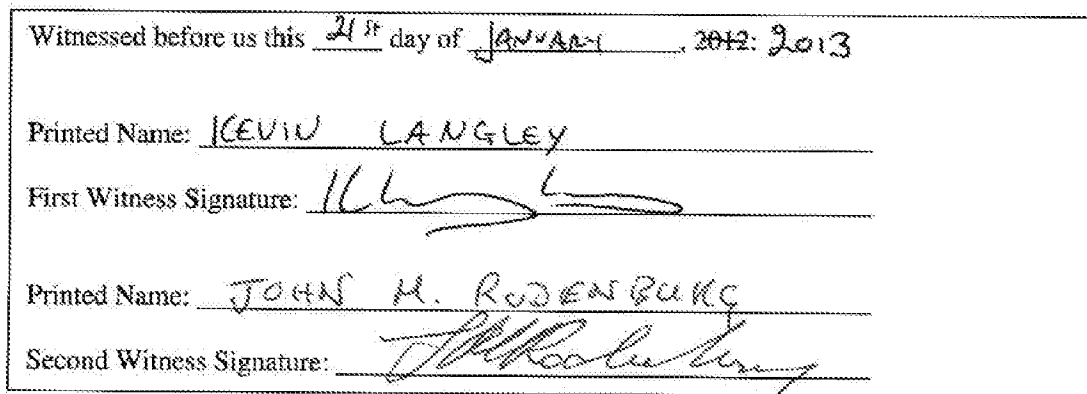 Witnessed before us this 21st day of JANUARY, 2012: 2013
Printed Name: KEVIN LANGLEY
First Witness Signature:
Printed Name: JOHN M. RODENBURG
Second Witness Signature: